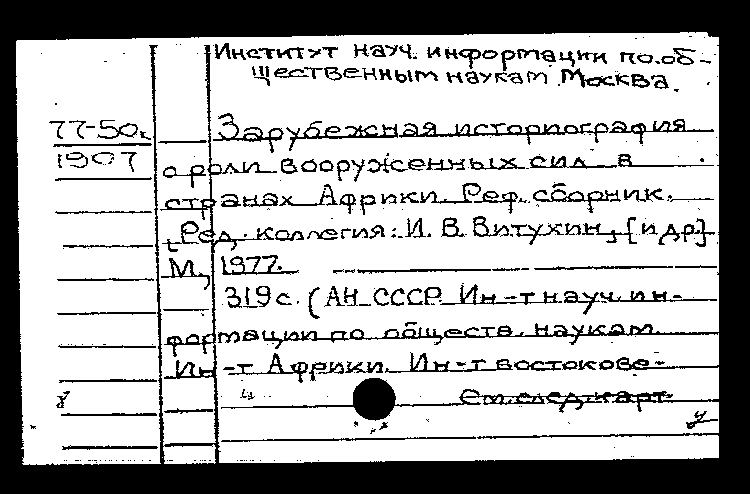 Институт науч. информации по об-
щественным наукам. Москва.
77-50к
1907
Зарубежная историография
о роли вооруженных сил в
странах Африки. Реф. сборник.
[Ред. коллегия: И. В. Витухин, [и др.]
М., 1977.
319 с. (АН СССР. Ин-т науч. ин-
формации по обществ. наукам.
Ин-т Африки. Ин-т востокове-
См. след. карт.